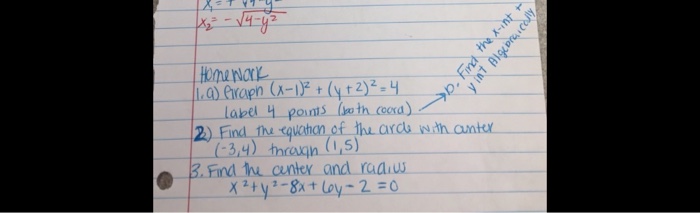 x₁ = + √4-y²
x₂ = - √4-y²
Homework
1.a) Graph (x-1)² + (y+2)² = 4
label 4 points (both coord) → b. Find the x-int +
y int Algebraically
2) Find the equation of the circle with center
(-3,4) through (1,5)
3. Find the center and radius
x²+y²-8x+6y-2=0